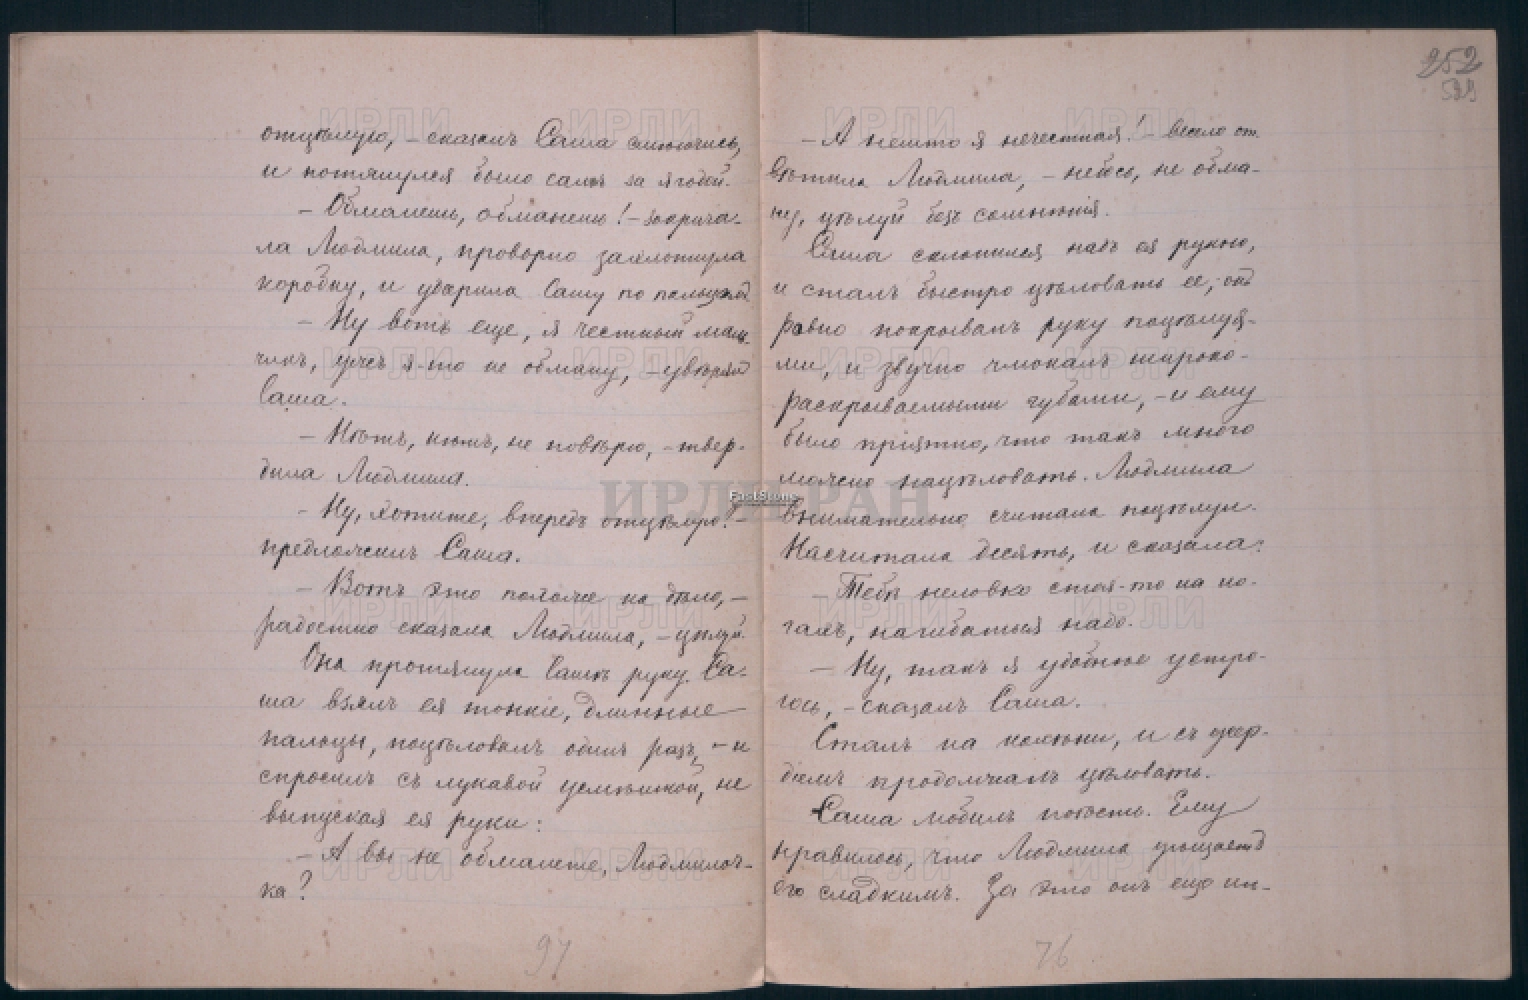 отцѣлую, – сказалъ Саша смѣючись,
и потянулся было самъ за ягодой.
– Обманешь, обманешь! – закрича-
ла Людмила, проворно захлопнула
коробку, и ударила Сашу по пальцамъ.
– Ну вотъ еще, я честный маль-
чикъ, ужъ я-то не обману, – увѣрялъ
Саша.
– Нѣтъ, нѣтъ, не повѣрю, – твер-
дила Людмила.
– Ну, хотите, впередъ отцѣлую? –
предложилъ Саша.
– Вотъ это похоже на дѣло, –
радостно сказала Людмила, – цѣлуй.
Она протянула Сашѣ руку. Са-
ша взялъ ея тонкіе, длинные
пальцы, поцѣловалъ одинъ разъ, – и
спросилъ съ лукавой усмѣшкой, не
выпуская ея руки:
– А вы не обманете, Людмилоч-
ка?
97
252
– А нешто я нечестная! – весело от-
вѣтила Людмила, – небось, не обма-
ну, цѣлуй безъ сомнѣнія.
Саша склонился надъ ея рукою,
и сталъ быстро цѣловать ее;
равно покрывалъ руку поцѣлуя-
ми, и звучно чмокалъ широко-
раскрываемыми губами, – и ему
было пріятно, что такъ много
можно нацѣловать. Людмила
внимательно считала поцѣлуи.
Насчитала десять, и сказала:
– Тебѣ неловко стоя-то на но-
гахъ, нагибаться надо.
– Ну, такъ я удобнѣе устро-
юсь, – сказалъ Саша.
Сталъ на колѣни, и съ усер-
діемъ продолжалъ цѣловать.
Саша любилъ поѣсть. Ему
нравилось, что Людмила угощаетъ
его сладкимъ. За это онъ еще нѣ-
76
ИРЛИ РАН
ИРЛИ
FastStone